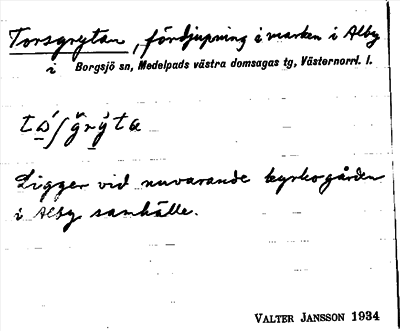 Torsgrytan, fördjupning i marken i Alby
i Borgsjö sn, Medelpads västra domsagas tg, Västernorrl. l.
Ligger vid nuvarande kyrkogården
i Alby samhälle.
VALTER JANSSON 1934